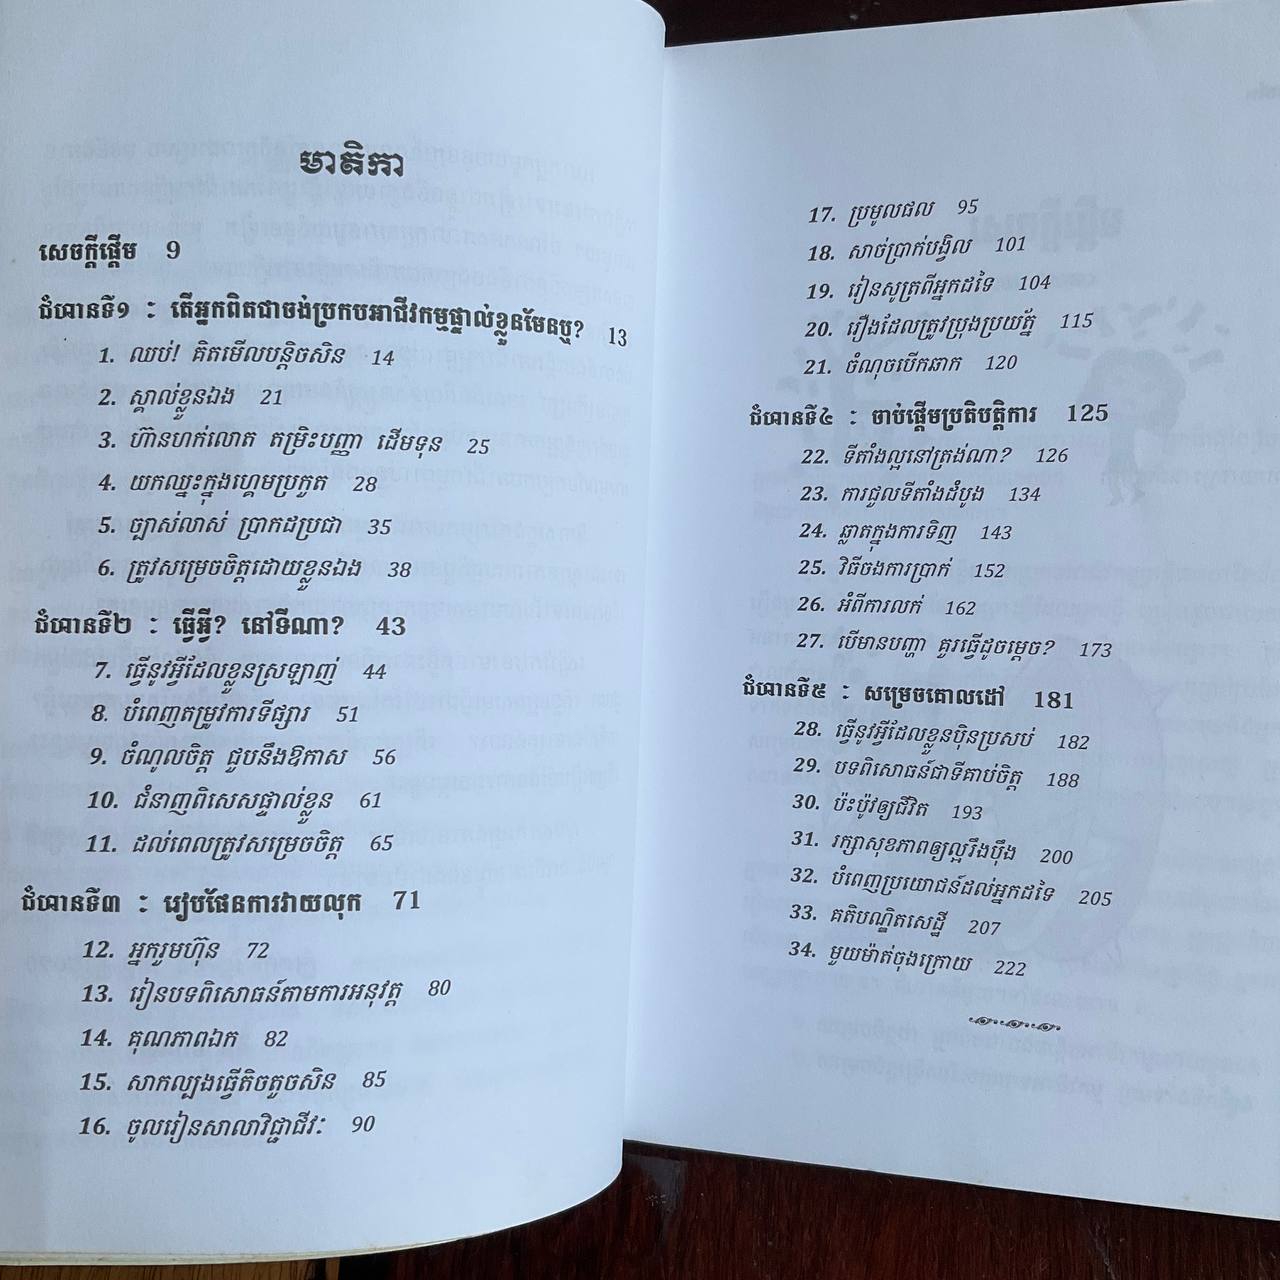 មាតិកា
សេចក្តីផ្តើម 9
ជំហានទី១ : តើអ្នកពិតជាចង់ប្រកបអាជីវកម្មផ្ទាល់ខ្លួនមែនឬ? 13
1. ឈប់! គិតមើលបន្តិចសិន 14
2. ស្គាល់ខ្លួនឯង 21
3. ហ៊ានហក់លោត តម្រិះបញ្ញា ដើមទុន 25
4. យកឈ្នះក្នុងហ្គេមប្រកួត 28
5. ច្បាស់លាស់ ប្រាកដប្រជា 35
6. ត្រូវសម្រេចចិត្តដោយខ្លួនឯង 38
ជំហានទី២ : ធ្វើអ្វី? នៅទីណា? 43
7. ធ្វើនូវអ្វីដែលខ្លួនស្រឡាញ់ 44
8. បំពេញតម្រូវការទីផ្សារ 51
9. ចំណូលចិត្ត ជួបនឹងឱកាស 56
10. ជំនាញពិសេសផ្ទាល់ខ្លួន 61
11. ដល់ពេលត្រូវសម្រេចចិត្ត 65
ជំហានទី៣ : រៀបផែនការវាយលុក 71
12. អ្នករួមហ៊ុន 72
13. រៀនបទពិសោធន៍តាមការអនុវត្ត 80
14. គុណភាពឯក 82
15. សាកល្បងធ្វើតិចតួចសិន 85
16. ចូលរៀនសាលាវិជ្ជាជីវៈ 90
17. ប្រមូលផល 95
18. សាច់ប្រាក់បង្វិល 101
19. រៀនសូត្រពីអ្នកដទៃ 104
20. រឿងដែលត្រូវប្រុងប្រយ័ត្ន 115
21. ចំណុចបើកឆាក 120
ជំហានទី៤ : ចាប់ផ្តើមប្រតិបត្តិការ 125
22. ទីតាំងល្អនៅត្រង់ណា? 126
23. ការជួលទីតាំងដំបូង 134
24. ឆ្លាតក្នុងការទិញ 143
25. វិធីចងការប្រាក់ 152
26. អំពីការលក់ 162
27. បើមានបញ្ហា គួរធ្វើដូចម្តេច? 173
ជំហានទី៥ : សម្រេចគោលដៅ 181
28. ធ្វើនូវអ្វីដែលខ្លួនប៉ិនប្រសប់ 182
29. បទពិសោធន៍ជាទីគាប់ចិត្ត 188
30. ប៉ះប៉ូវឲ្យជីវិត 193
31. រក្សាសុខភាពឲ្យល្អរឹងប៉ឹង 200
32. បំពេញប្រយោជន៍ដល់អ្នកដទៃ 205
33. គតិបណ្ឌិតសេដ្ឋី 207
34. មួយម៉ាត់ចុងក្រោយ 222